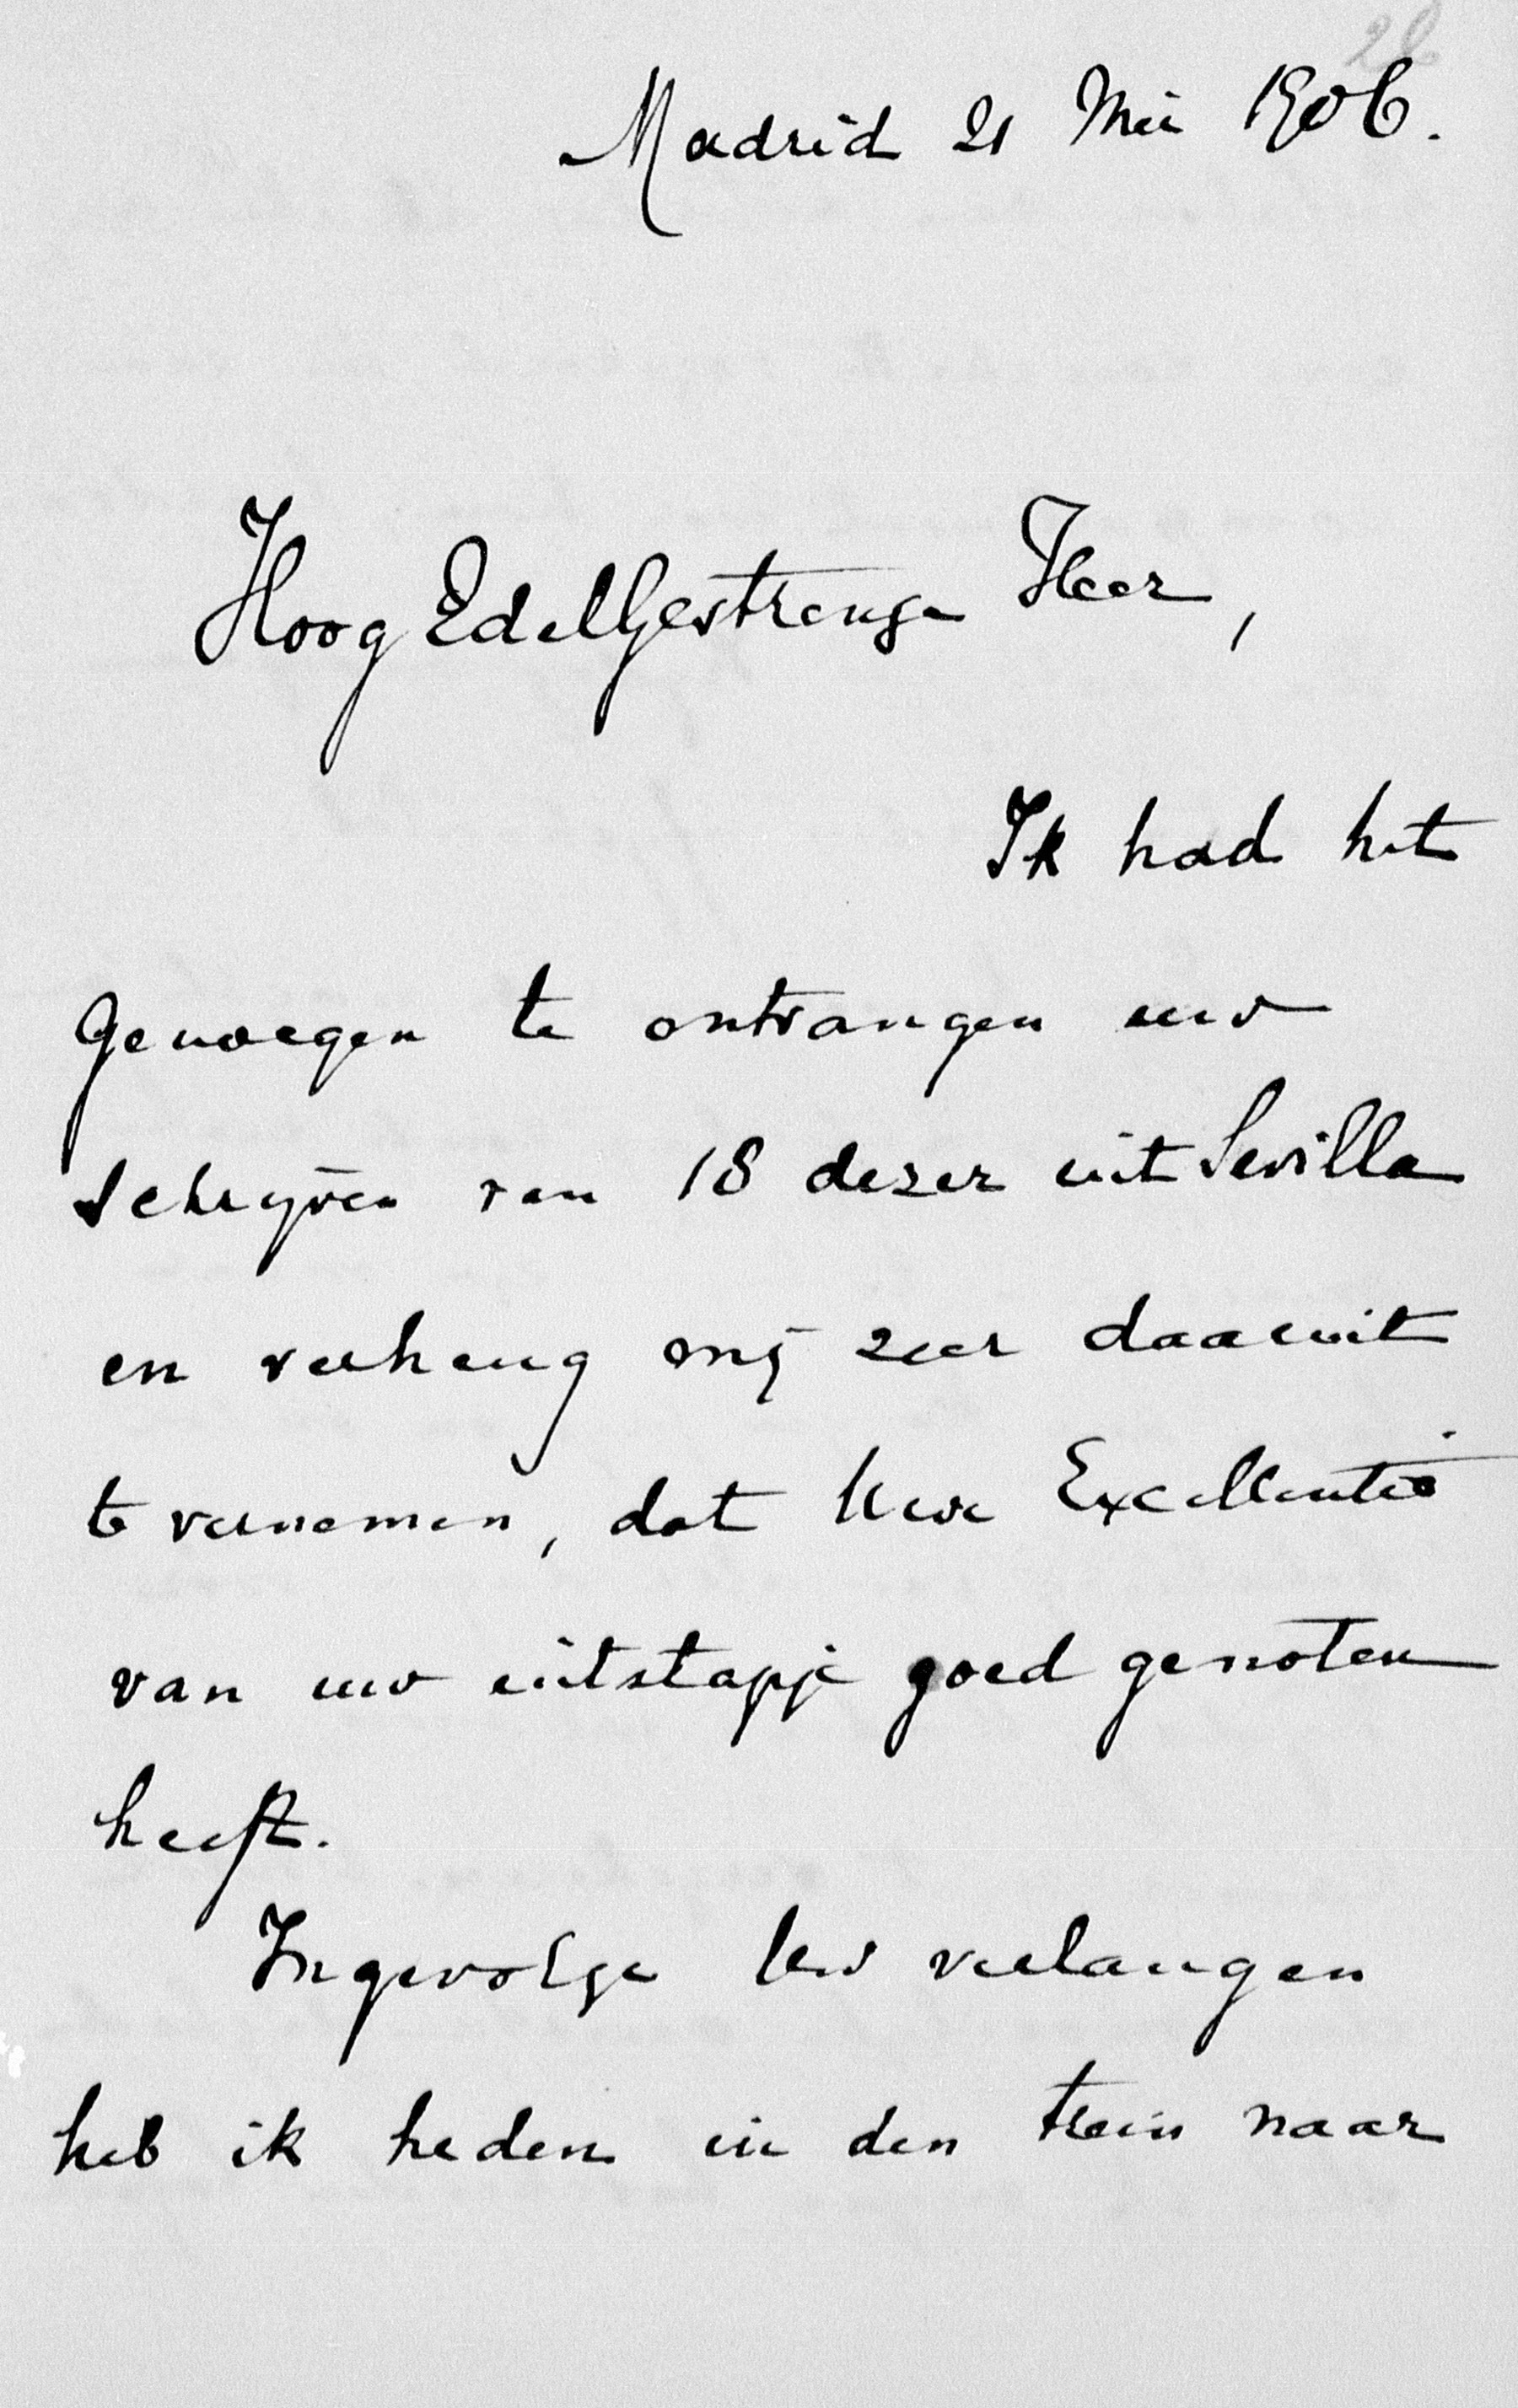 26
Madrid 21 Mei 1906.
HoogEdelGestrenge Heer,
Ik had het
genoegen te ontvangen uw
schrijven van 18 dezer uit Sevilla
en verheug mij zeer daaruit
te vernemen, dat Uwe Excellentie
van uw uitstapje goed genoten
heeft.
Ingevolge Uw verlangen
heb ik heden in den trein naar